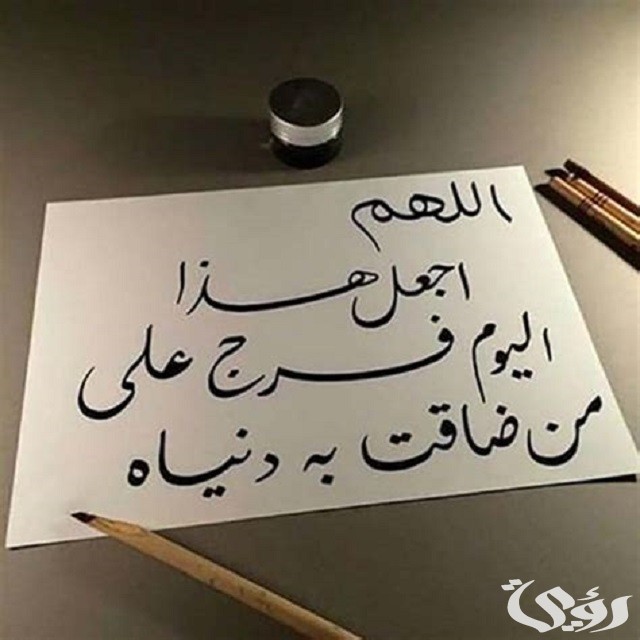 اللهم
اجعل هذا
اليوم فرج على
من ضاقت به دنياه
رؤية